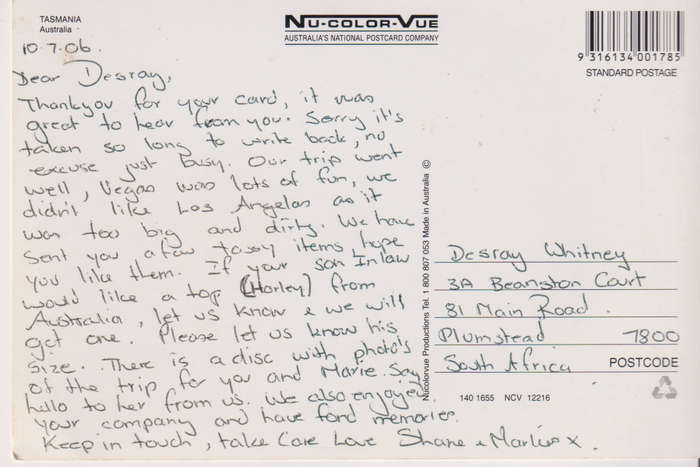 TASMANIA
Australia
NU-COLOR-VUE
AUSTRALIA'S NATIONAL POSTCARD COMPANY
9 316134 001785
STANDARD POSTAGE
10.7.06.
Dear Desray,
Thankyou for your card, it was
great to hear from you. Sorry it's
taken so long to write back, no
excuse just busy. Our trip went
well, Vegas was lots of fun, we
didn't like Los Angelas as it
was too big and dirty. We have
sent you a few tassy items hope
you like them. If your son Inlaw
would like a top (Harley) from
Australia, let us know & we will
get one. Please let us know his
size. There is a disc with photo's
of the trip for you and Marie. Say
hello to her from us. We also enjoyed
your company and have fond memories.
Keep in touch, take Care Love Shane & x.
Nucolorvue Productions Tel. 1 800 807 053 Made in Australia ©
Desray Whitney
3A Beanston Court
81 Main Road.
Plumstead 7800
South Africa POSTCODE
140 1655 NCV 12216